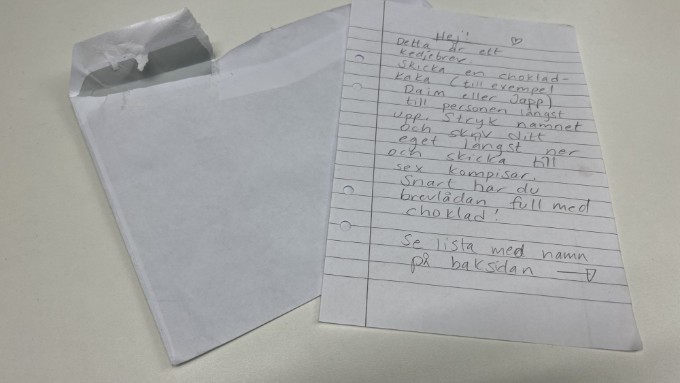 Hej! ♡
Detta är ett
kedjebrev
skicka en choklad-
kaka (till exempel
Daim eller Japp)
till personen längst
upp. Stryk namnet
och skriv ditt
eget längst ner
och skicka till
sex kompisar.
Snart har du
brevlådan full med
choklad!
Se lista med namn
på baksidan →